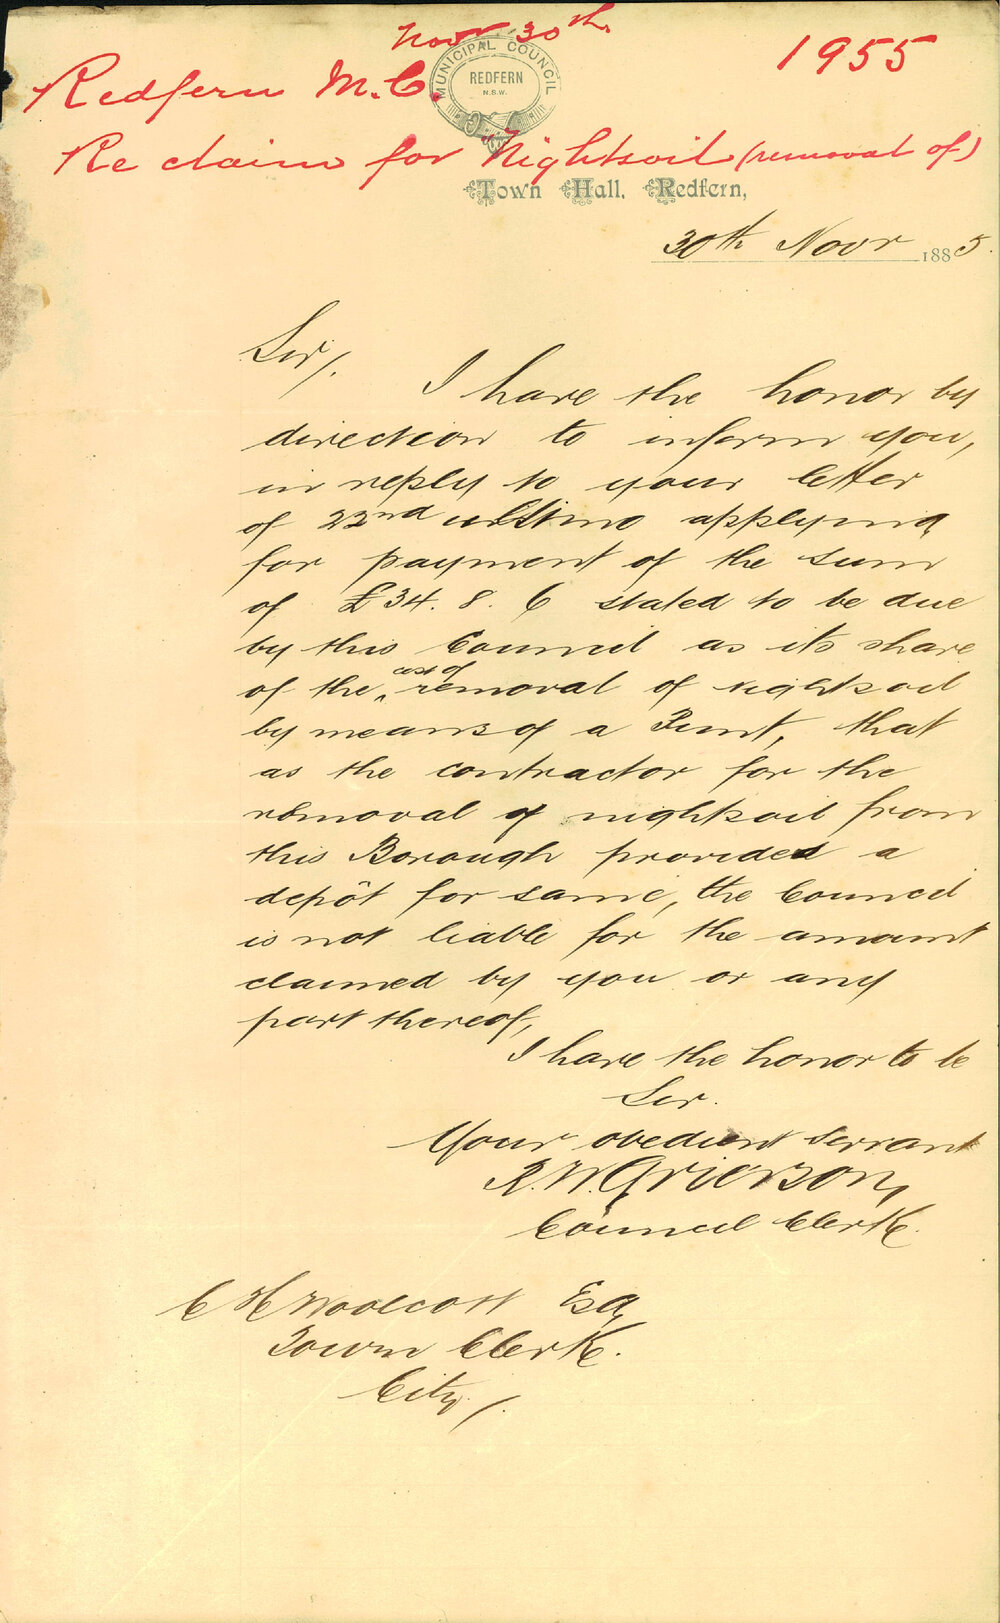 Novr 30th
1955
Redfern M.C.
MUNICIPAL COUNCIL
REDFERN
N.S.W.
Re claim for Nightsoil (removal of)
Town Hall, Redfern,
30th Novr 1885.
Sir/.
I have the honor by
direction to inform you,
in reply to your letter
of 22nd ultimo applying
for payment of the sum
of £34. 8. 6 stated to be due
by this Council as its share
of the ^ cost of removal of nightsoil
by means of a Punt, that
as the contractor for the
removal of nightsoil from
this Borough provides a
depôt for same, the Council
is not liable for the amount
claimed by you or any
part thereof,
I have the honor to be
Sir.
Your obedient Servant
R.W. Grierson,
Council Clerk.
C H Woolcott Esq
Town Clerk.
City/.